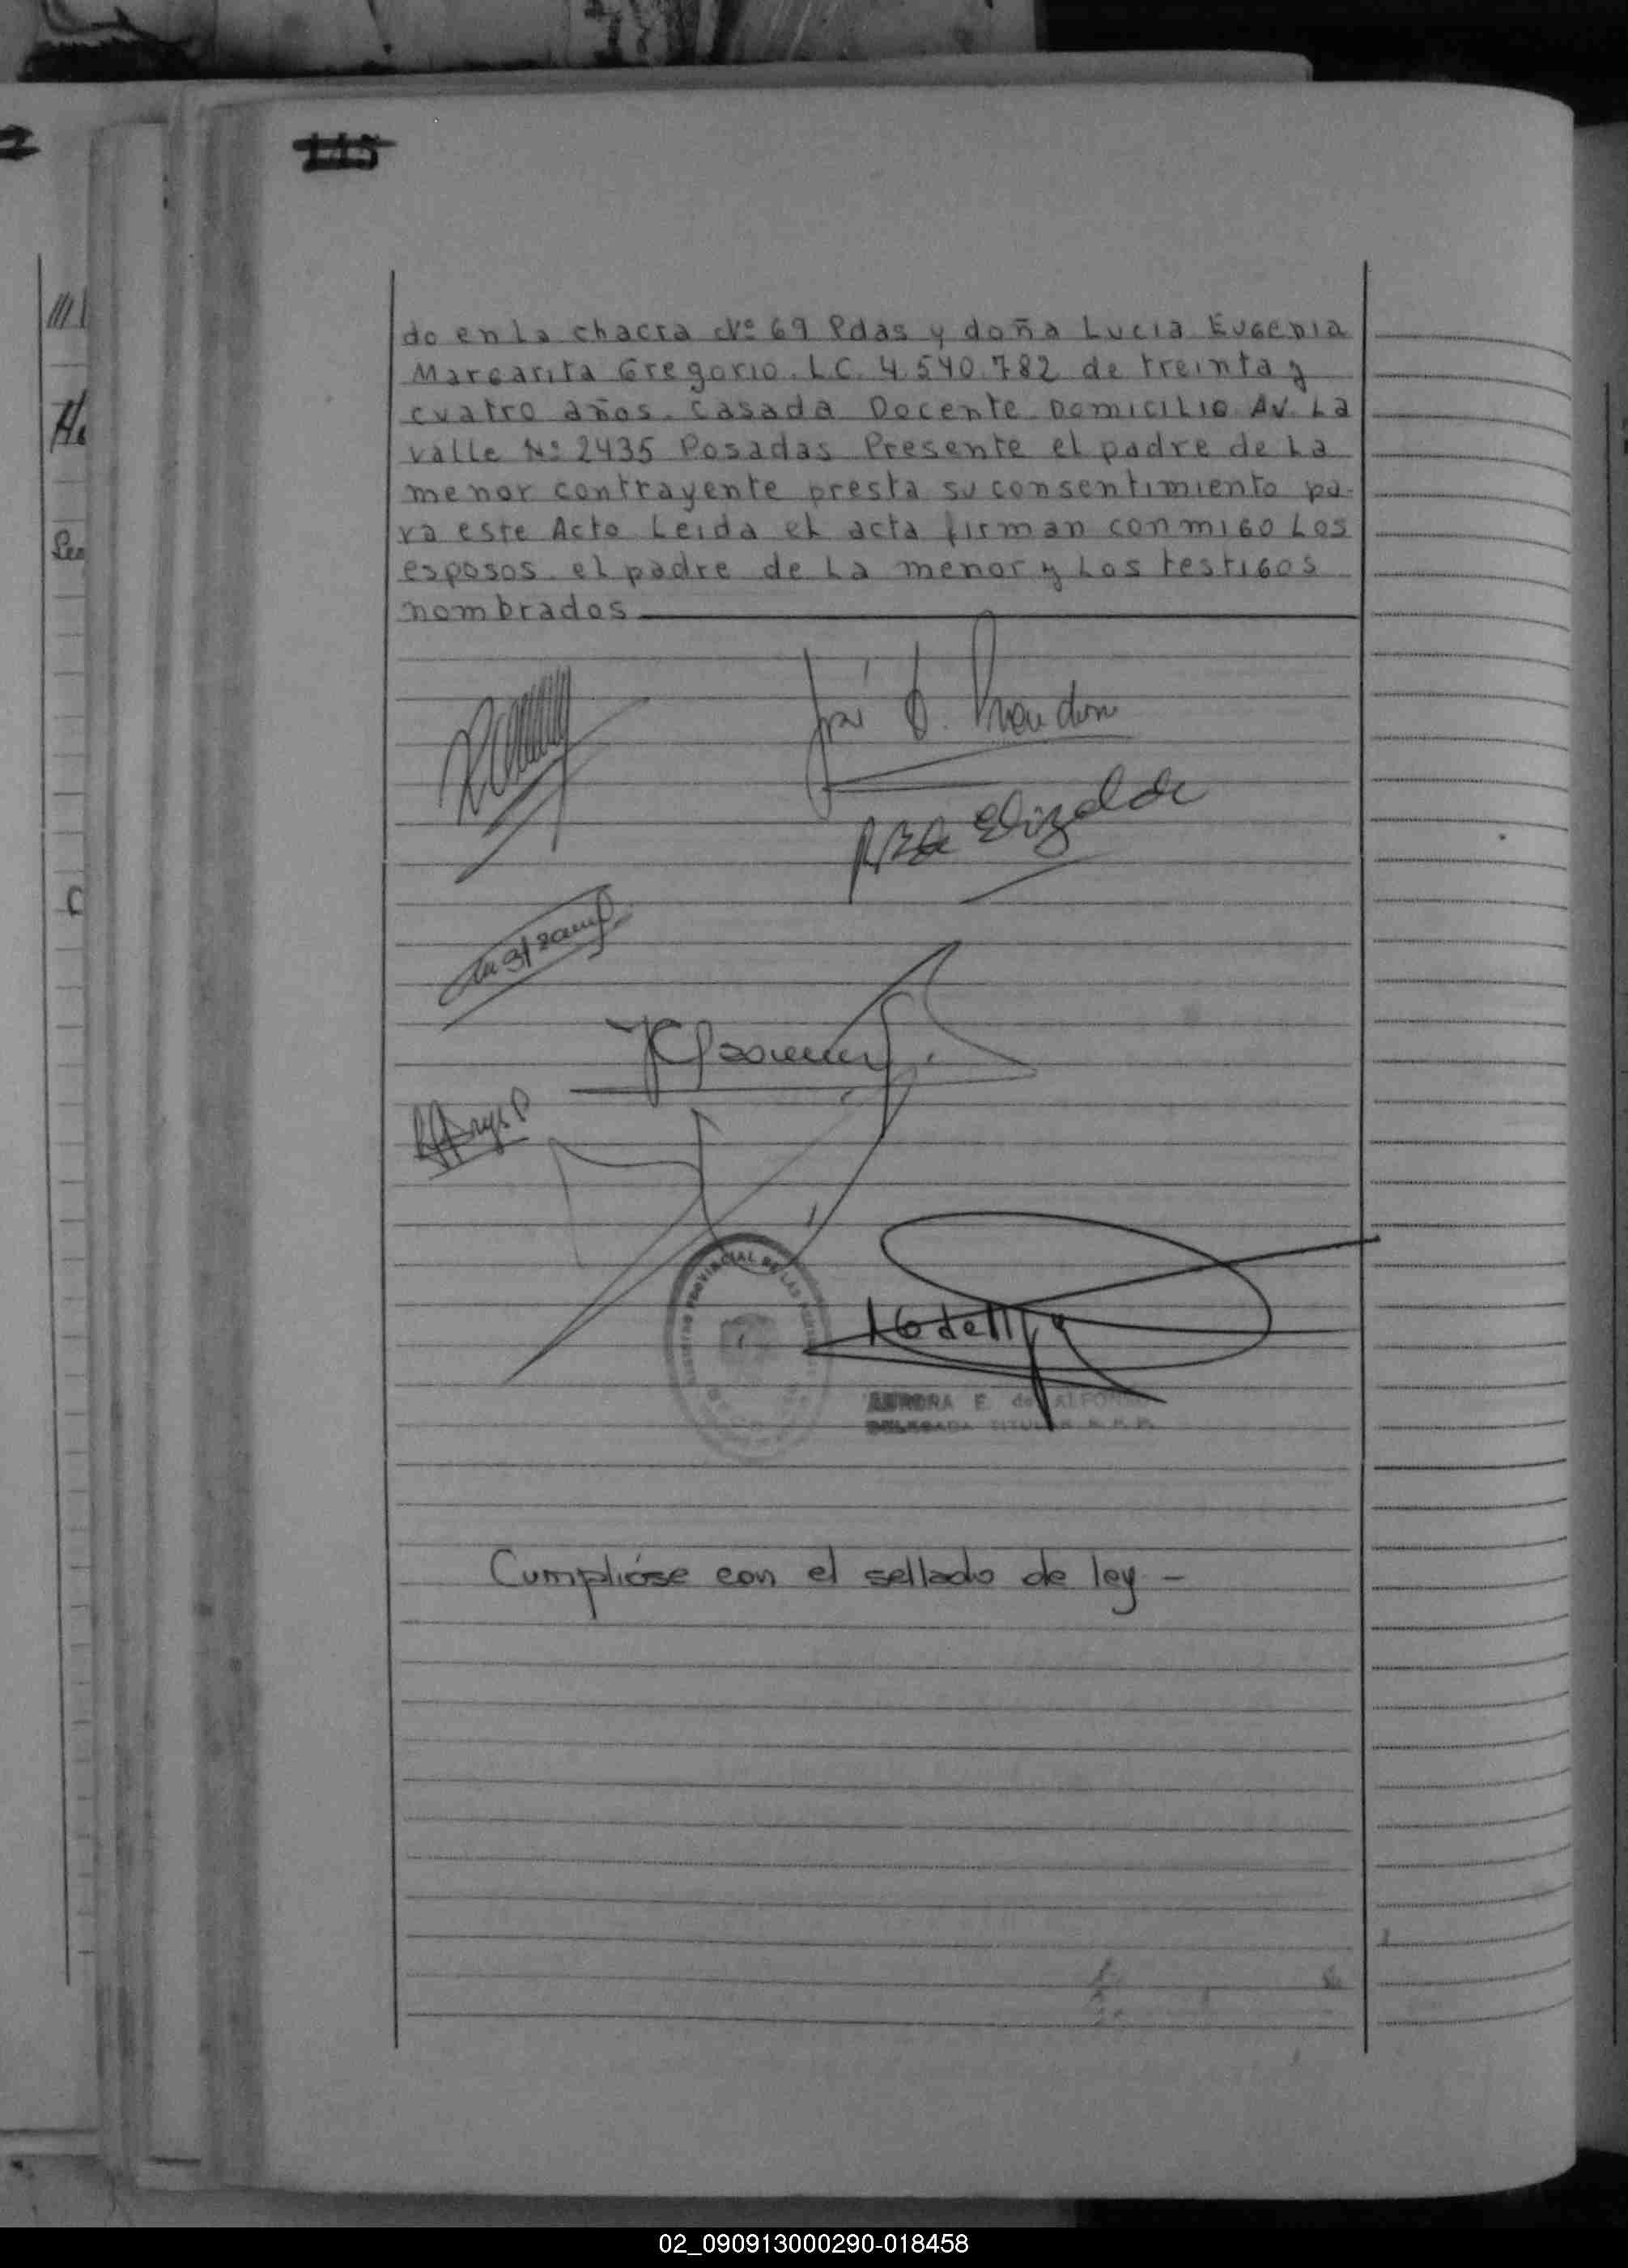 115
do en la chacra Nº 69 Pdas y doña Lucia Eugenia
Margarita Gregorio. L.C. 4.540.782 de treinta y
cuatro años. casada Docente Domicilio Av. La
valle Nº 2435 Posadas Presente el padre de la
menor contrayente presta su consentimiento pa-
ra este Acto Leida el acta firman conmigo los
esposos. el padre de la menor y los testigos
nombrados
Elizalde
PROVINCIAL DE LAS
AURORA E. de ALFONSO
DELEGADA TITULAR R. P. P.
Cumplióse con el sellado de ley -
02_090913000290-018458